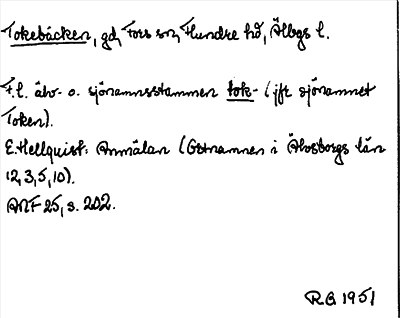 Tokebäcken, gd, Fors sn, Flundre hd, Älvbgs l.
T.l. älv- o. sjönamnsstammen tok- (jfr sjönamnet
Token).
E. Hellquist: Anmälan (Ortnamnen i Älvsborgs län
12, 3, 5, 10).
ANF 25, s. 202.
RG 1951